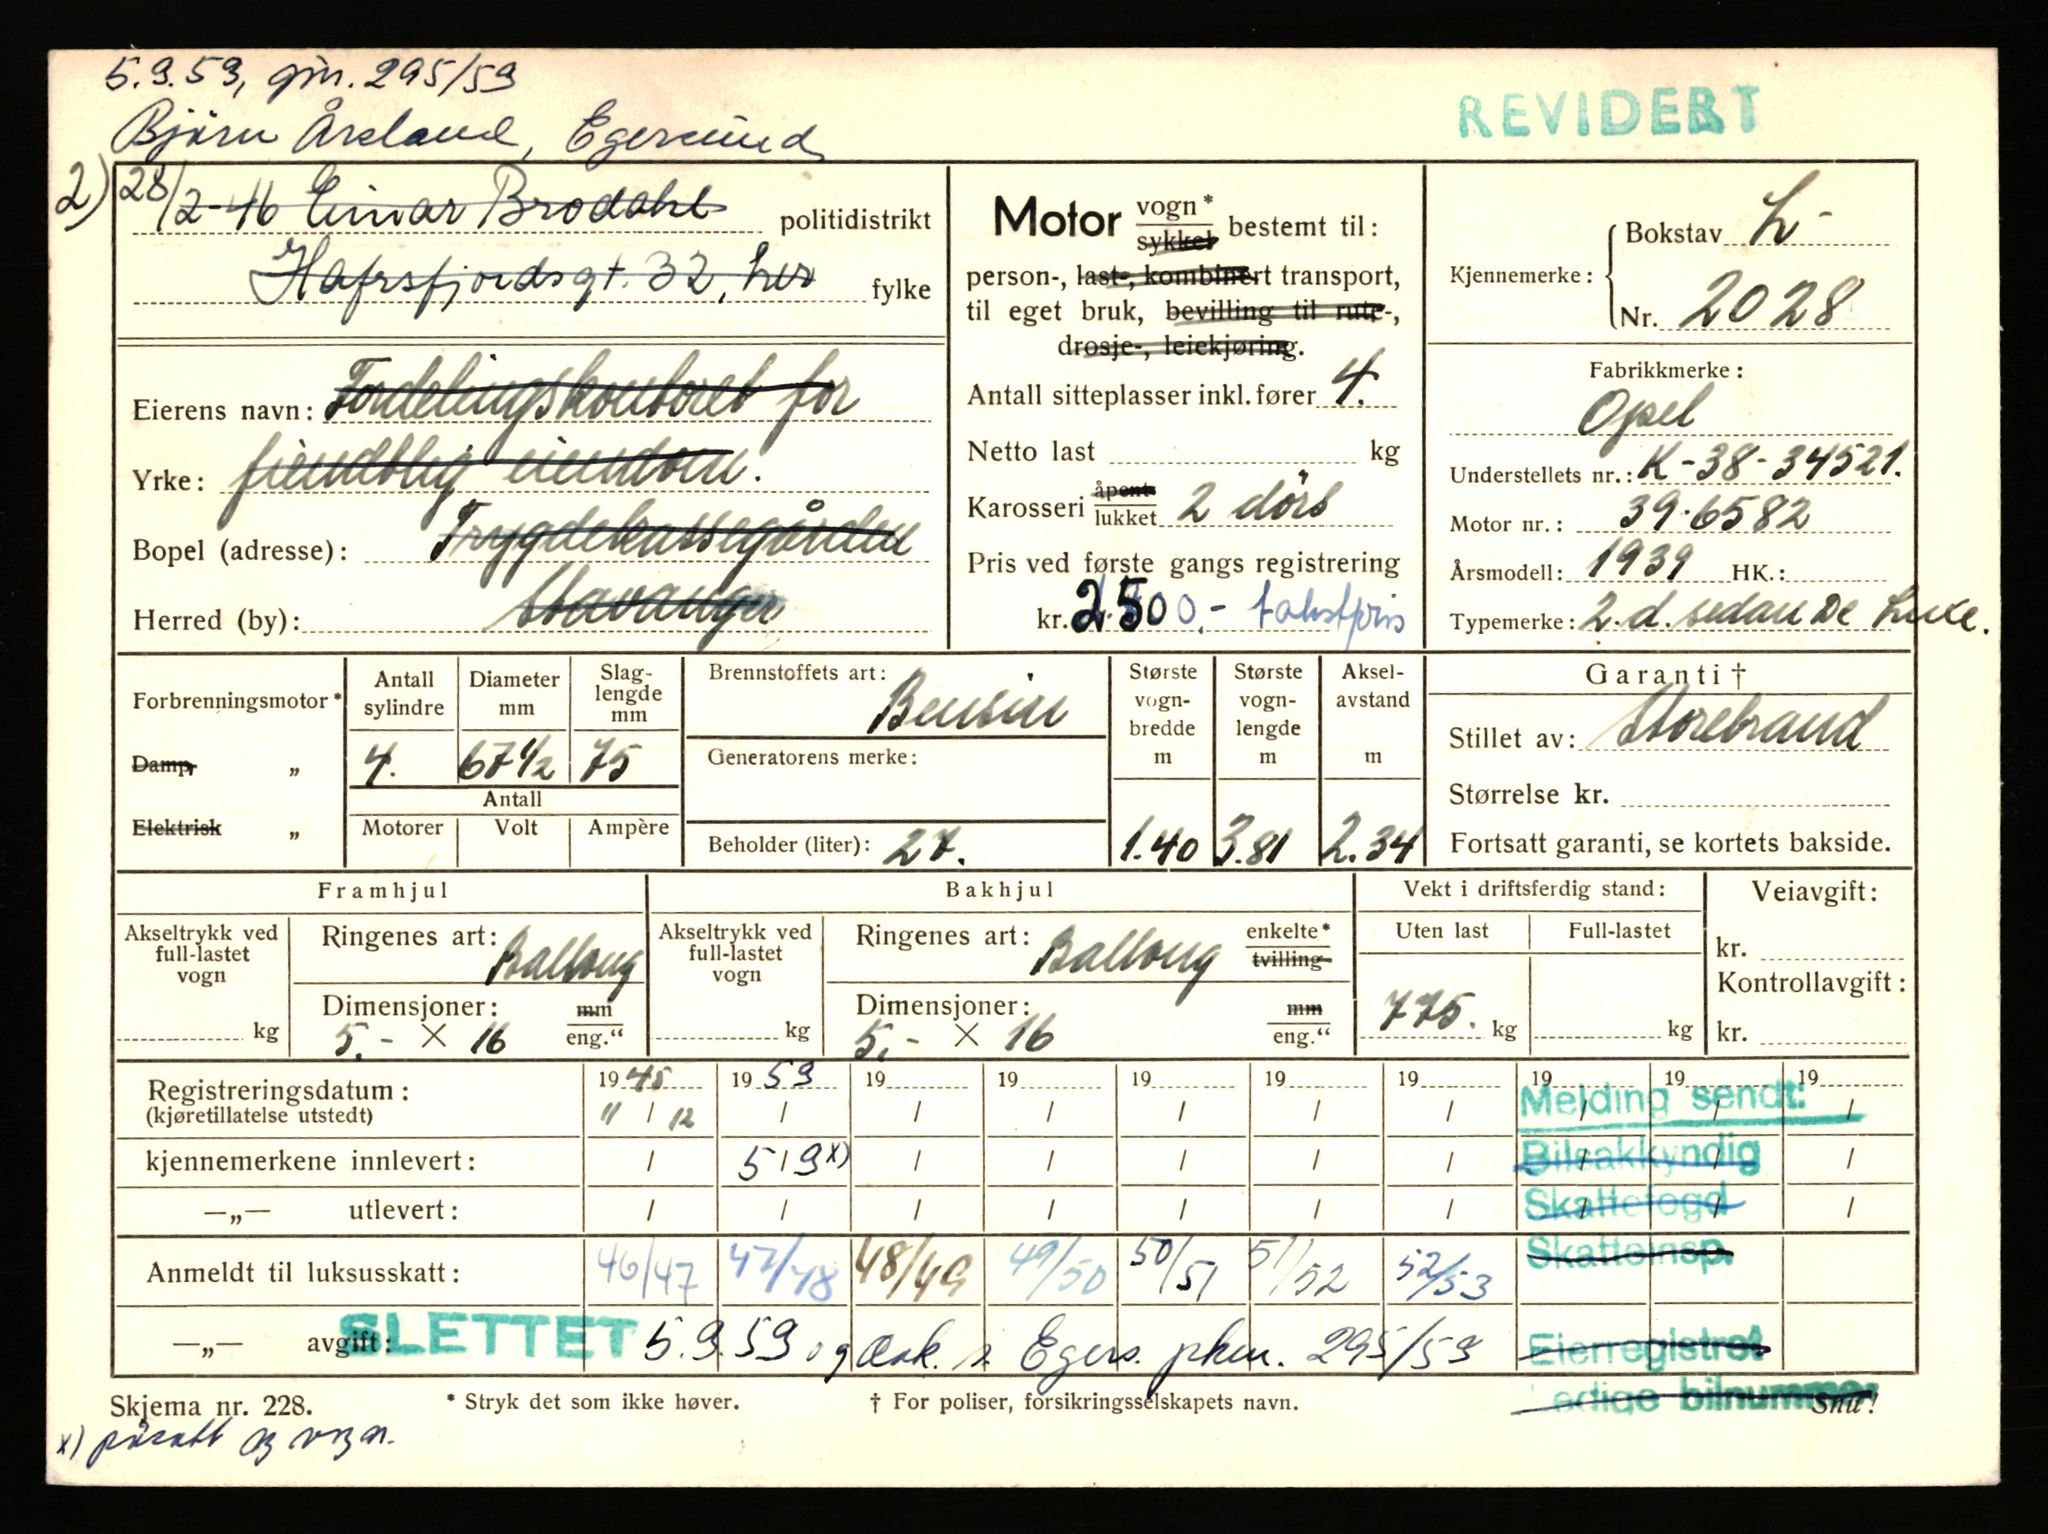 5.9.53, gjn. 295/53
REVIDERT
Bjørn Årsland, Egersund
2) 28/2-46 Einar Brodahl politidistrikt
Hafrsfjordsgt. 32, her fylke
Eierens navn: Fordelingskontoret for
Yrke: fiendtlig eiendom.
Bopel (adresse): Trygdekassegården
Herred (by): Stavanger
Motor vogn* sykkel bestemt til:
person-, last-, kombinert transport,
til eget bruk, bevilling til rute-,
drosje-, leiekjøring.
Antall sitteplasser inkl. fører 4.
Netto last kg
Karosseri åpent lukket 2 dörs
Pris ved første gangs registrering
kr. 2500.- takstpris
Kjennemerke: Bokstav L-
Nr. 2028
Fabrikkmerke:
Opel
Understellets nr.: K-38-34521.
Motor nr.: 39.6582
Årsmodell: 1939 HK.:
Typemerke: 2.d. sedan De Luxe.
Forbrenningsmotor*
Damp „
Elektrisk „
Antall sylindre
4.
Diameter mm
67 1/2
Slag-lengde mm
75
Antall
Motorer Volt Ampère
Brennstoffets art: Bensin
Generatorens merke:
Beholder (liter): 27.
Største vogn-bredde m
1.40
Største vogn-lengde m
3.81
Aksel-avstand m
2.34
Garanti †
Stillet av: Storebrand
Størrelse kr.
Fortsatt garanti, se kortets bakside.
Framhjul
Akseltrykk ved full-lastet vogn
kg
Ringenes art: Ballong
Dimensjoner: mm
5.- × 16 eng."
Bakhjul
Akseltrykk ved full-lastet vogn
kg
Ringenes art: Ballong enkelte* tvilling
Dimensjoner: mm
5.- × 16 eng."
Vekt i driftsferdig stand:
Uten last Full-lastet
775. kg kg
Veiavgift:
kr.
Kontrollavgift:
kr.
Registreringsdatum: 1945 1953 19 19 19 19 19 19 19 19
(kjøretillatelse utstedt) 11 / 12 / / / / / / / / /
Melding sendt:
kjennemerkene innlevert: / 5/9 x) / / / / / / / /
Bilsakkyndig
—„— utlevert: / / / / / / / / / /
Skattefogd
Anmeldt til luksusskatt: 46/47 47/48 48/49 49/50 50/51 51/52 52/53
Skatteinsp.
—„— avgift: SLETTET 5.9.53 og Egers. 295/53
Eierregistret
Ledige bilnummer
Skjema nr. 228. * Stryk det som ikke høver. † For poliser, forsikringsselskapets navn. Snu!
x) påsatt vogn.